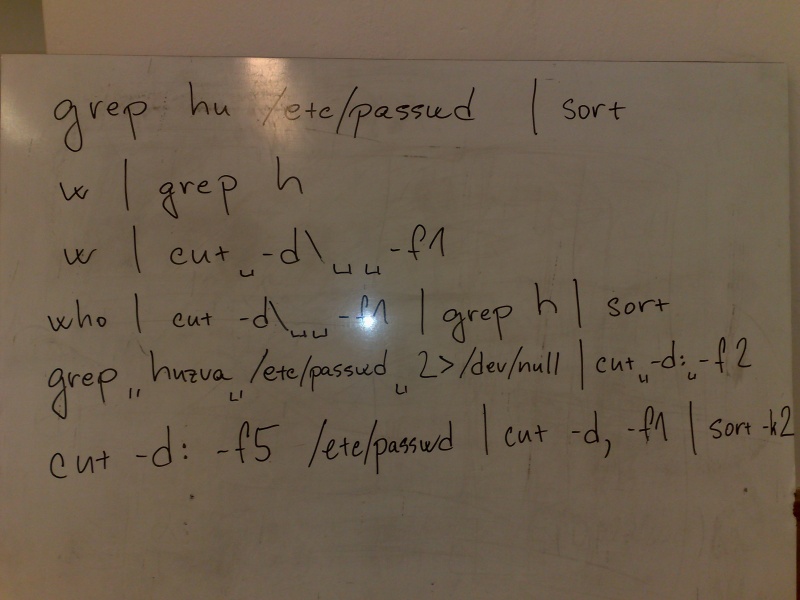 grep hu /etc/passwd | sort
w | grep h
w | cut␣-d\␣␣-f1
who | cut -d\␣␣-f1 | grep h | sort
grep␣huzva␣/etc/passwd␣2>/dev/null | cut␣-d:␣-f2
cut -d: -f5 /etc/passwd | cut -d, -f1 | sort -k2